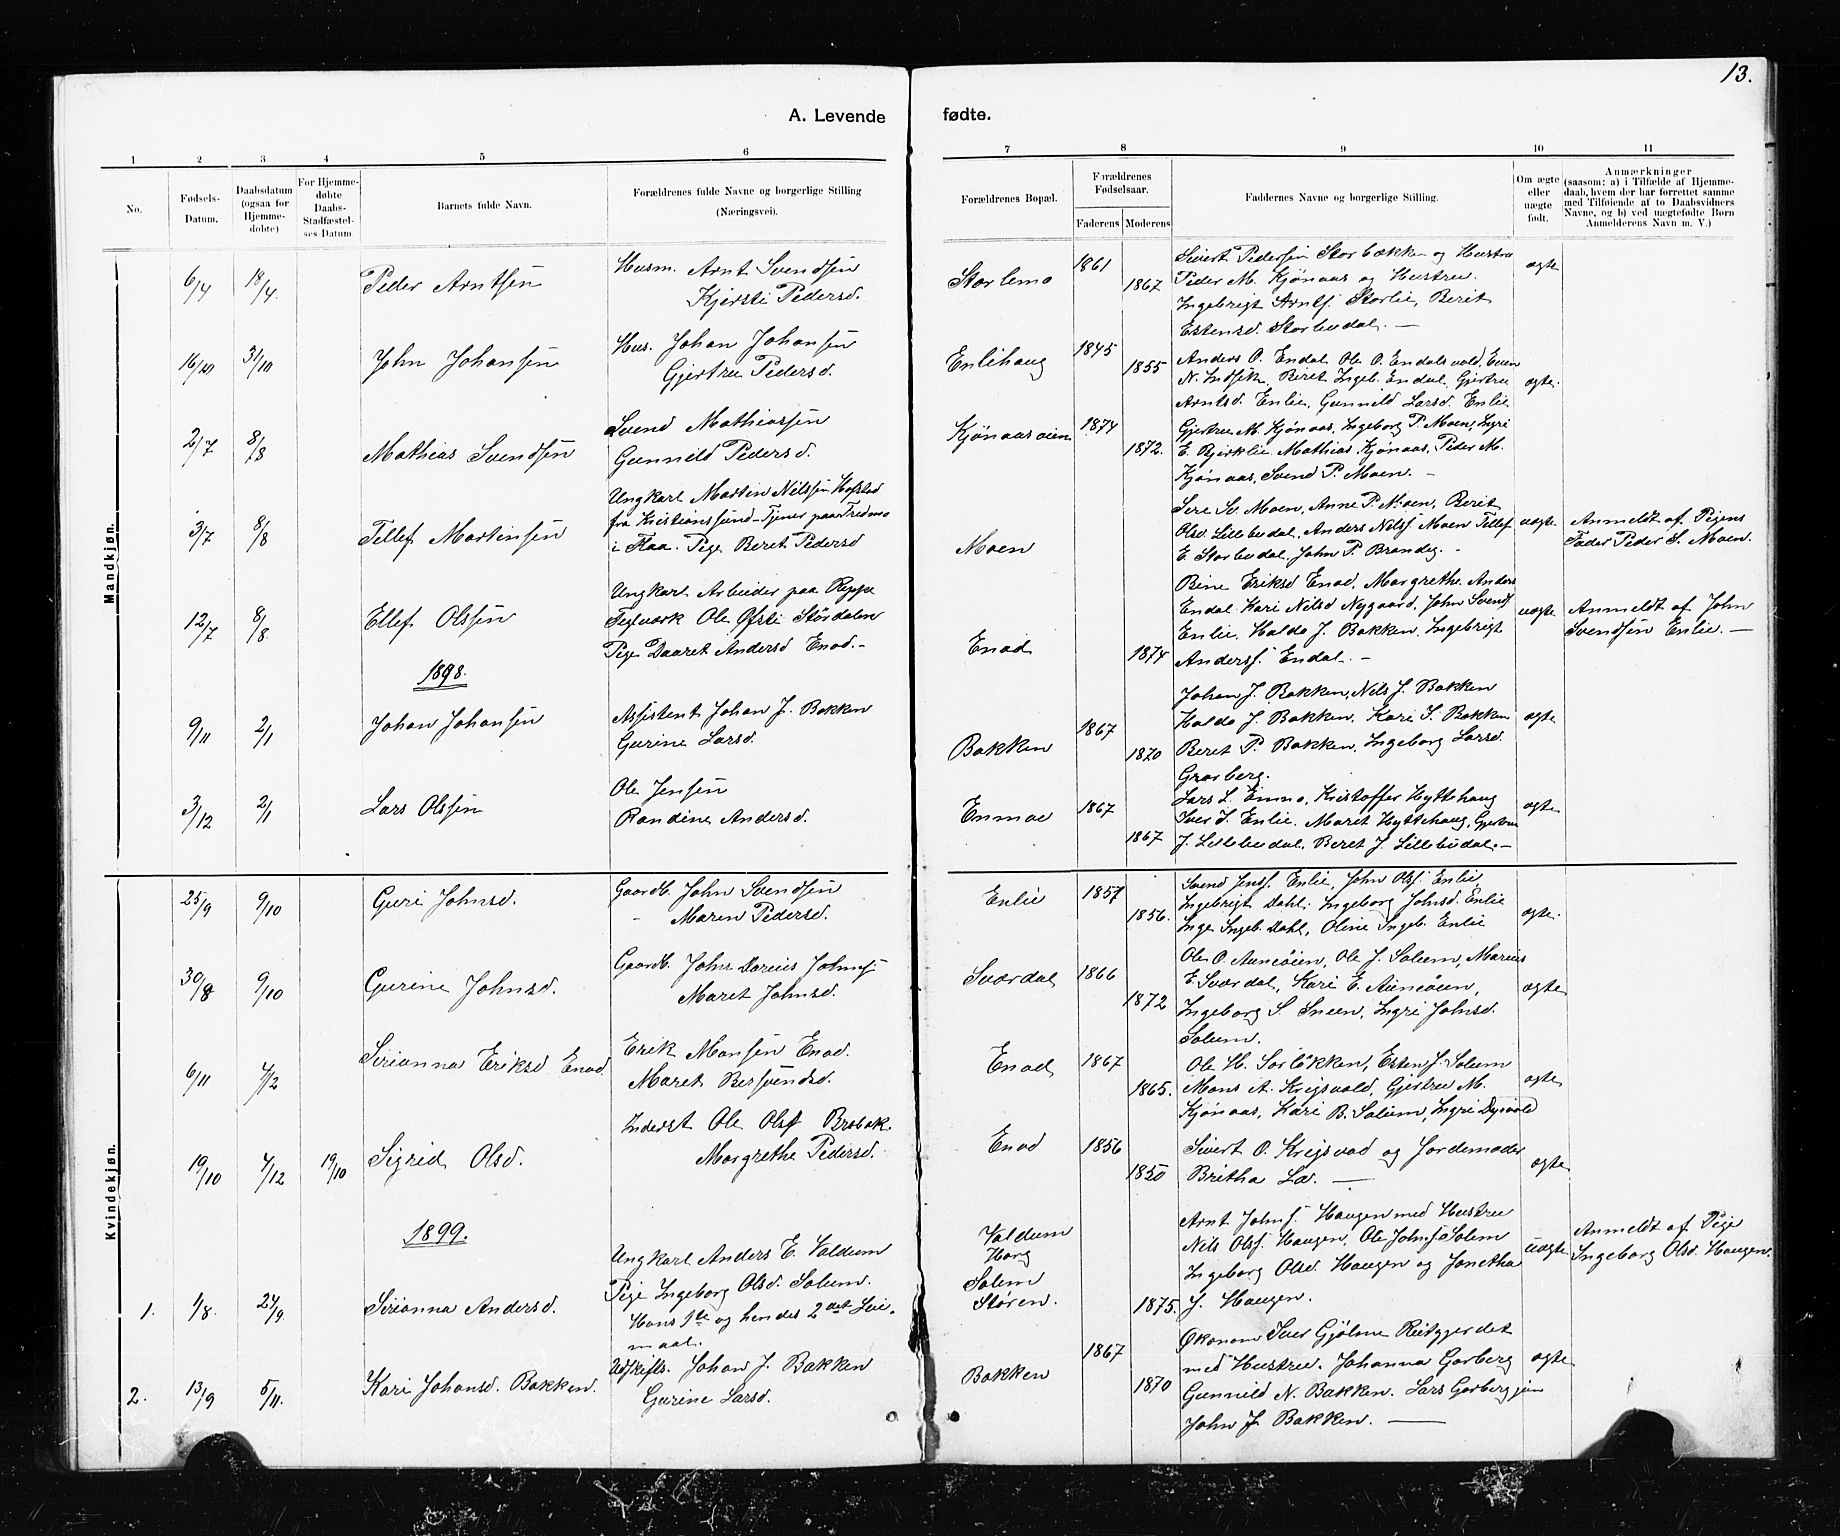 13.
A. Levende fødte.
1 2 3 4 5 6 7 8 9 10 11
No.
Fødsels-
Datum.
Daabsdatum
(ogsaa for
Hjemme-
døbte)
For Hjemme-
døbte
Daabs-
Stadfæstel-
ses-Datum.
Barnets fulde Navn.
Forældrenes fulde Navne og borgerlige Stilling
(Næringsvei).
Forældrenes Bopæl.
Forældrenes
Fødselsaar.
Faderens Moderens
Faddernes Navne og borgerlige Stilling.
Om ægte
eller
uægte
født.
Anmærkninger
(saasom: a) i Tilfælde af Hjemme-
daab, hvem der har forrettet samme
med Tilføiende af to Daabsvidners
Navne, og b) ved uægtefødte Børn
Anmelderens Navn m. V.)
Mandkjøn.
6/4 18/4. Peder Arntsen
Husm. Arnt Svendsen
Kjersti Pedersd.
Storlimo 1861 1867
Sivert Pedersen Storbækken og Hustru
Peder M. Kjønaas og Hustru.
Ingebrigt Arnts. Storlie, Berit
Estensd. Storbudal. —
ægte
16/10 31/10 John Johansen
Hus. Johan Johansen
Gjertru Pedersd.
Enlihaug 1845 1855
Anders O. Endal, Ole O. Endalsvold, Even
N. Indsik, Beret Ingeb. Endal, Gjertru
Arntsd. Enlie, Gunnild Larsd. Enlie
ægte.
2/7 8/8 Mathias Svendsen
Svend Mathiassen
Gunnild Pedersd.
Kjønaasøien 1874 1872.
Gjertru M. Kjønaas, Ingeborg P. Moen, Ingri
E. Bjerklie, Mathias Kjønaas, Peder M.
Kjønaas, Svend P. Moen. —
3/7 8/8 Tellef Martinsen
Ungkarl Martin Nilssen Hofstad
fra Kristianssund - Tjener paa Fredmo
i Flaa. Pige Beret Pedersd
Moen
Sere Sv. Moen, Anne P. Moen, Berit
Olsd. Lillebudal, Anders Nilss. Moen Tellef
E. Storbudal, John P. Brandeg. -
uægte
Anmeldt af Pigens
Fader Peder S. Moen.
12/7 8/8. Ellef Olssen
Ungkarl Arbeider paa Reppe
Teglverk Ole Øfsti Størdalen
Pige Daaret Andersd Enod. -
Enod 1874
Bine Eriksd Enod, Margrethe Anders
Endal Kari Nilsd Nygaard, John Svends
Enlie, Haldo J. Bakken, Ingebrigt
Anderss. Endal. -
uægte
Anmeldt af John
Svendsen Enlie. —
1898.
9/11 2/1 Johan Johansen
Assistent Johan J. Bakken
Gurine Larsd.
Bakken 1867 1870
Johan J. Bakken, Nils J. Bakken
Haldo J. Bakken, Kari S. Bakken
Beret P. Bakken, Ingeborg Larsd.
Grarberg.
ægte
3/12 2/1 Lars Olssen
Ole Jensen
Randine Andersd.
Enmoe 1867 1867
Lars L. Enmo, Kristoffer Hyttehaug
Iver J. Enlie, Maret Hyttehaug, Gjertru
J. Lillebudal, Beret J. Lillebudal. —
ægte
Kvindekjøn.
25/9 9/10 Guri Johnsd.
Gaardb. John Svendsen
- Maren Pedersd.
Enlie 1857 1856.
Svend Jenss. Enlie, John Olss. Enlie
Ingebrigt Dahl, Ingeborg Johnsd. Enlie
Inge Ingeb. Dahl, Oline Ingeb. Enlie
ægte.
30/8 9/10 Gurine Johnsd.
Gaardb. John Darius Johns.
Maret Johnsd.
Sværdal 1866 1872
Ole O. Aunøien, Ole J. Solem, Marius
E. Sværdal, Kari E. Aunøien,
Ingeborg S. Sneen, Ingri Johnsd.
Solem.
ægte
6/11 4/12 Sirianna Eriksd Enod
Erik Monsen Enod.
Maret Bersvendsd.
Enod 1867 1865.
Ole H. Sorløkken, Esten J. Solem
Mons A. Krigsvold, Gjertru M.
Kjønaas, Kari B. Solem, Ingri Dysvold
ægte
19/10 4/12 19/10 Sigrid Olsd.
Inderst Ole Olss Brobak.
Margrethe Pedersd.
Enod 1856 1850
Sivert O. Krigsvad og Jordemoder
Britha Lo. —
ægte
1899.
1. 1/8. 24/9. Sirianna Andersd.
Ungkarl Anders E. Valdum
Pige Ingeborg Olsd. Solem.
Hans 1ste og hendes 2det Lei-
maal.
Valdum
Horg
Solem
Støren. 1875.
Arnt Johns. Haugen med Hustru
Nils Olss. Haugen, Ole Johns. Solem
Ingeborg Olsd. Haugen og Jonetha
J. Haugen.
uægte
Anmeldt af Pige
Ingeborg Olsd. Haugen.
2. 13/9 5/11. Kari Johansd. Bakken.
Udskifts. Johan J. Bakken
Gurine Larsd.
Bakken 1867 1870
Økonom Iver Gjølme Reitgjerdet
med Hustru. Johanna Garberg
Gunnild N. Bakken. Lars Garberg jun
John J. Bakken. —
ægte